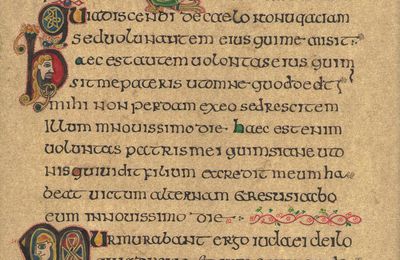 Quia discendi de caelo nonuqaciam
sed uoluntatem eius qui me misit
haec est autem uoluntas eius qui m
sit me pateris ut omne quod dedt
mihi non perdam ex eo sed rescitem
illum in nouissimo die haec est enim
uoluntas patris mei qui m siane uto
nis qui uidit filium et credit meum ha
beat uictum alternam et resusiacbo
eum in nouissimo die
Murmurabant ergo iudaei de ilo